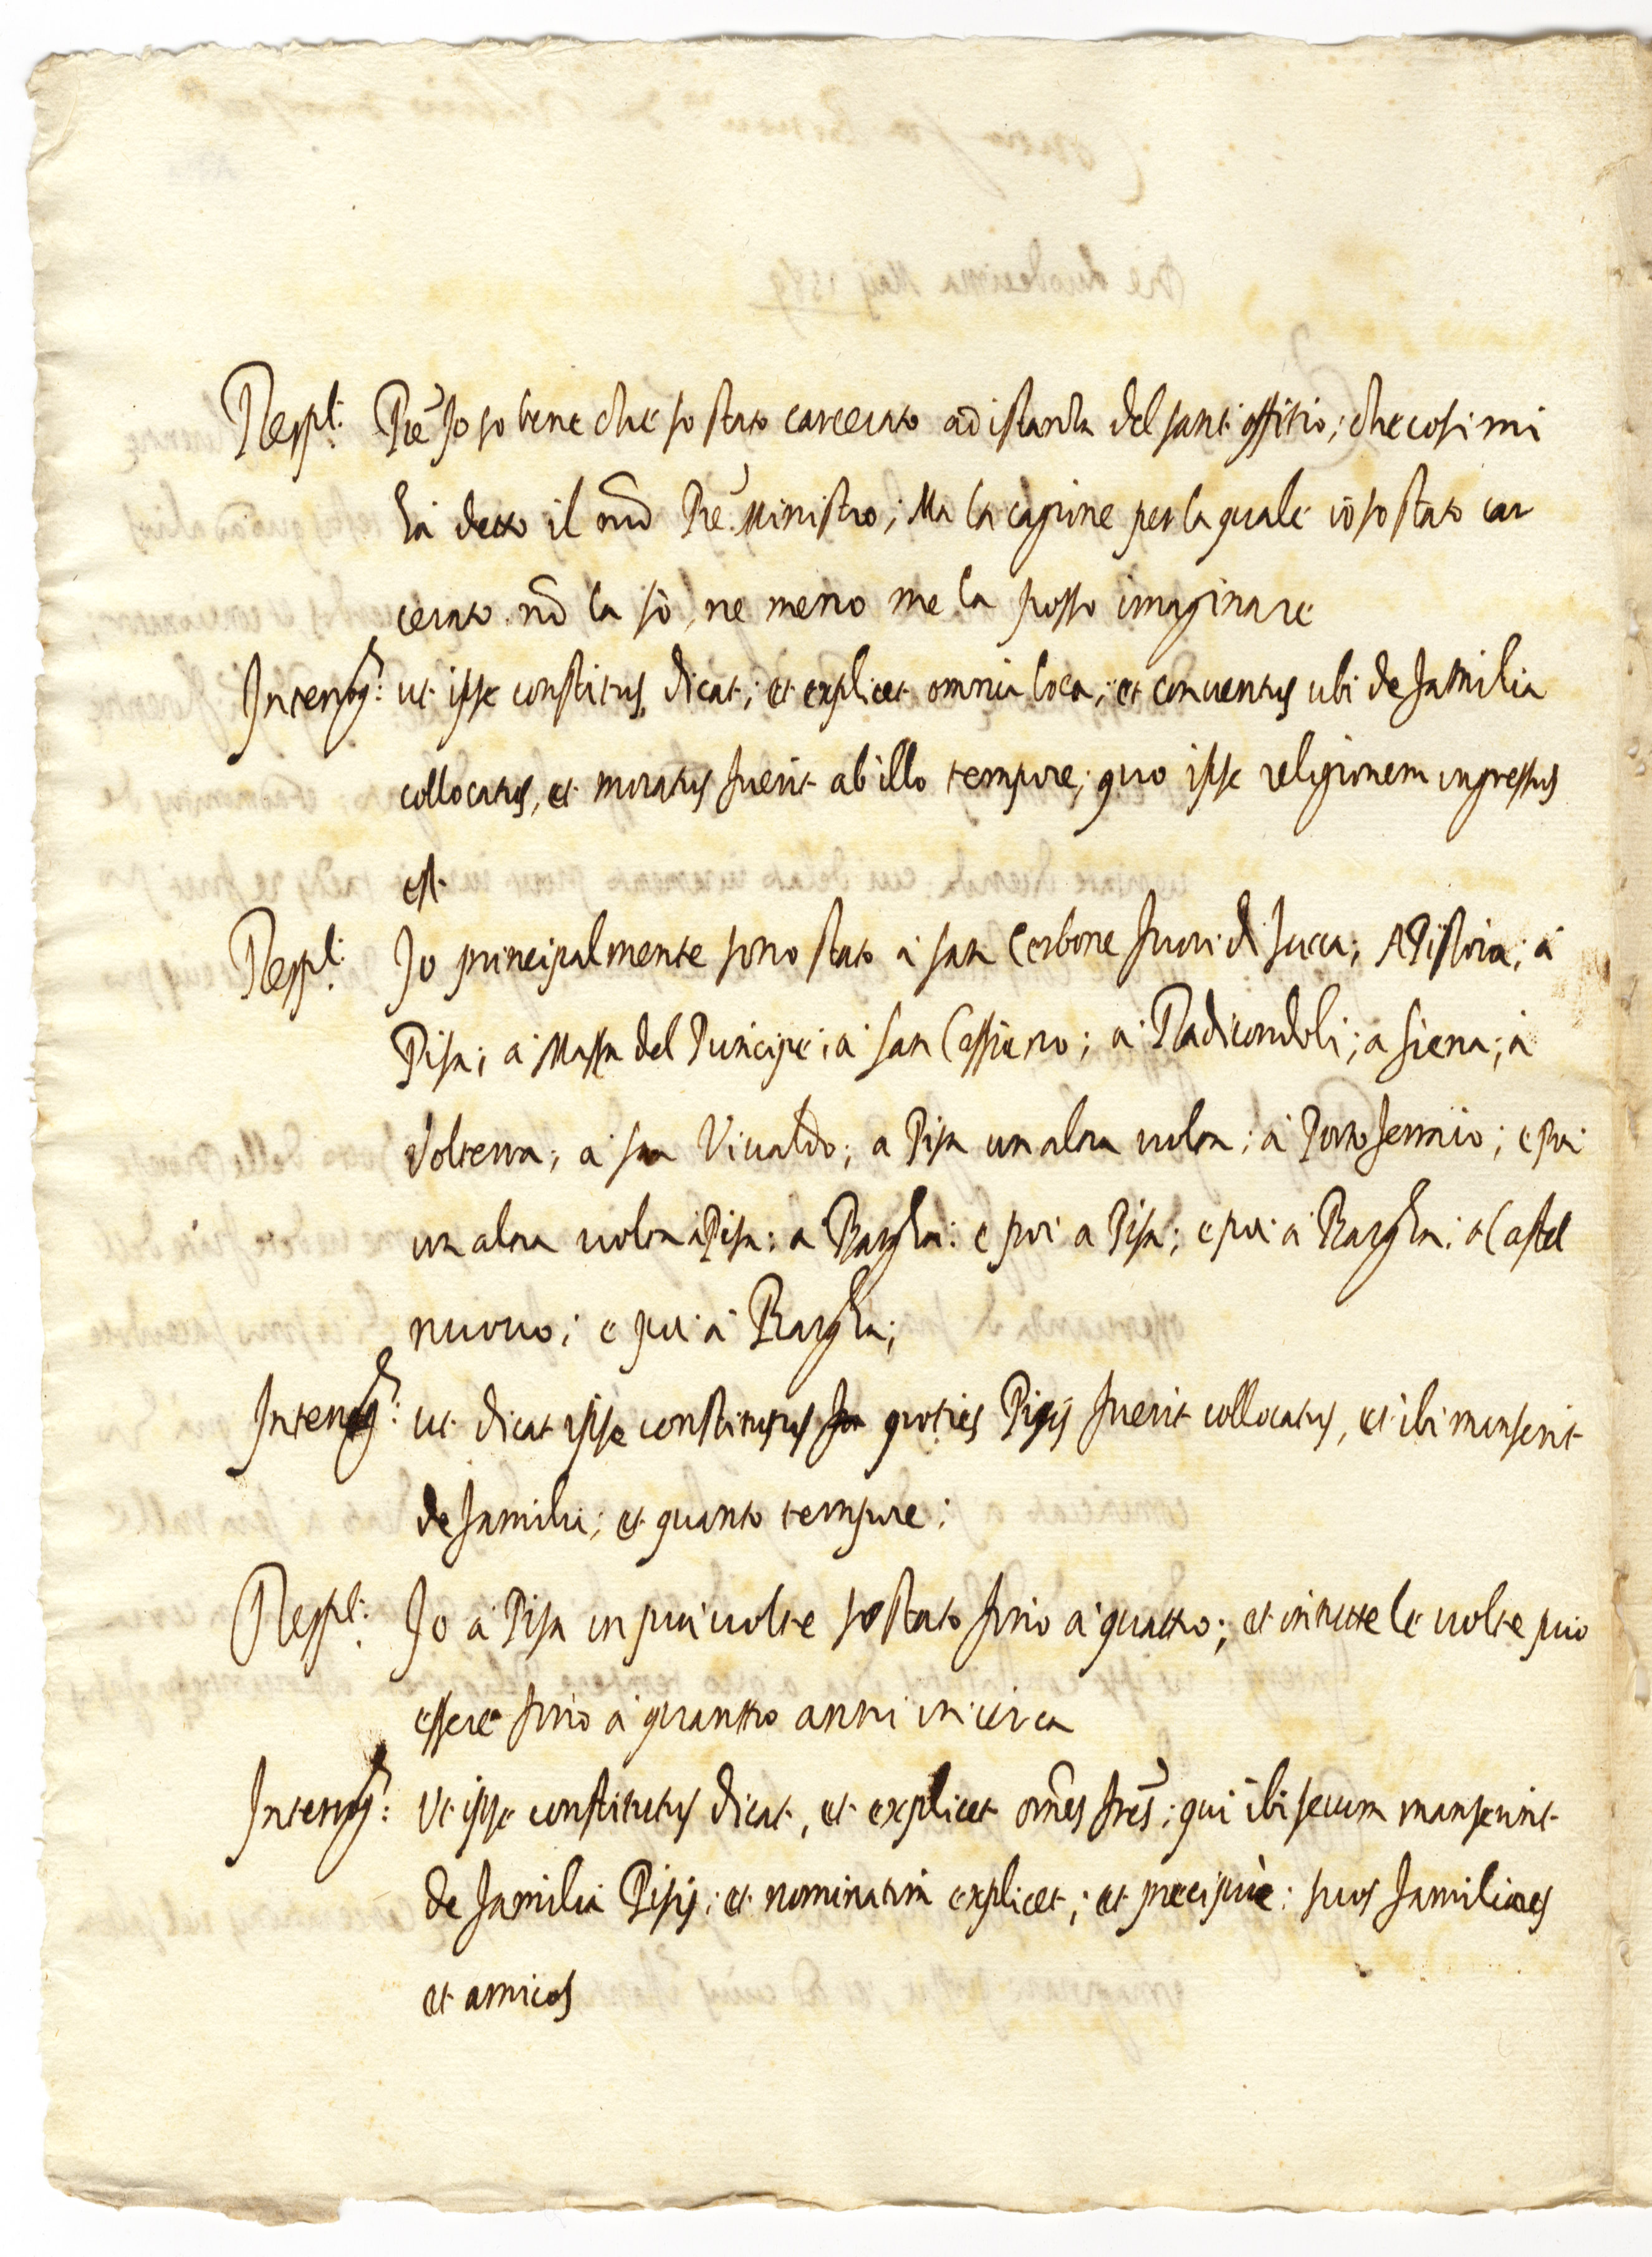 Respt: Pre Jo so bene che so stato carcerato ad istantia del sant' offitio; che cosi mi
hà detto il mio Pre. Ministro; Ma la cagione per la quale iò so stato car
cerato nō la sò, ne meno me la posso imaginare
Interrog: ut ipse constitus, dicat; et explicet omnia loca; et conuentus ubi de familia
collocatus, et moratus fuerit ab illo tempore; quo ipse religionem ingressus
est
Respt: Jo principalmente sono stato à san Cerbone fuori di Lucca; A Pistoia; à
Pisa; à Massa del Principe; à san Cassiano; à Radicondoli; a Siena; à
Volterra; à san Viualdo; a Pisa un altra uolta; à Porto ferraio; e poi
un altra uolta à Pisa; a Bargha: e poi a Pisa; e poi à Bargha; à Castel
nuouo; e poi à Bargha;
Interrog: ut dicat ipse constitutus quoties Pisis fuerit collocatus, et ibi manserit
de familia; et quanto tempore;
Respt: Jo à Pisa in più uolte so stato fino à quattro; et in tutte le uolte può
essere fino à quanttro anni in circa
Interrog: Ut ipse constitutus dicat, et explicet om̄es fres; qui ibi secum manserint
de familia Pisis; et nominatim explicet; et precipuè: suos familiares
et amicos